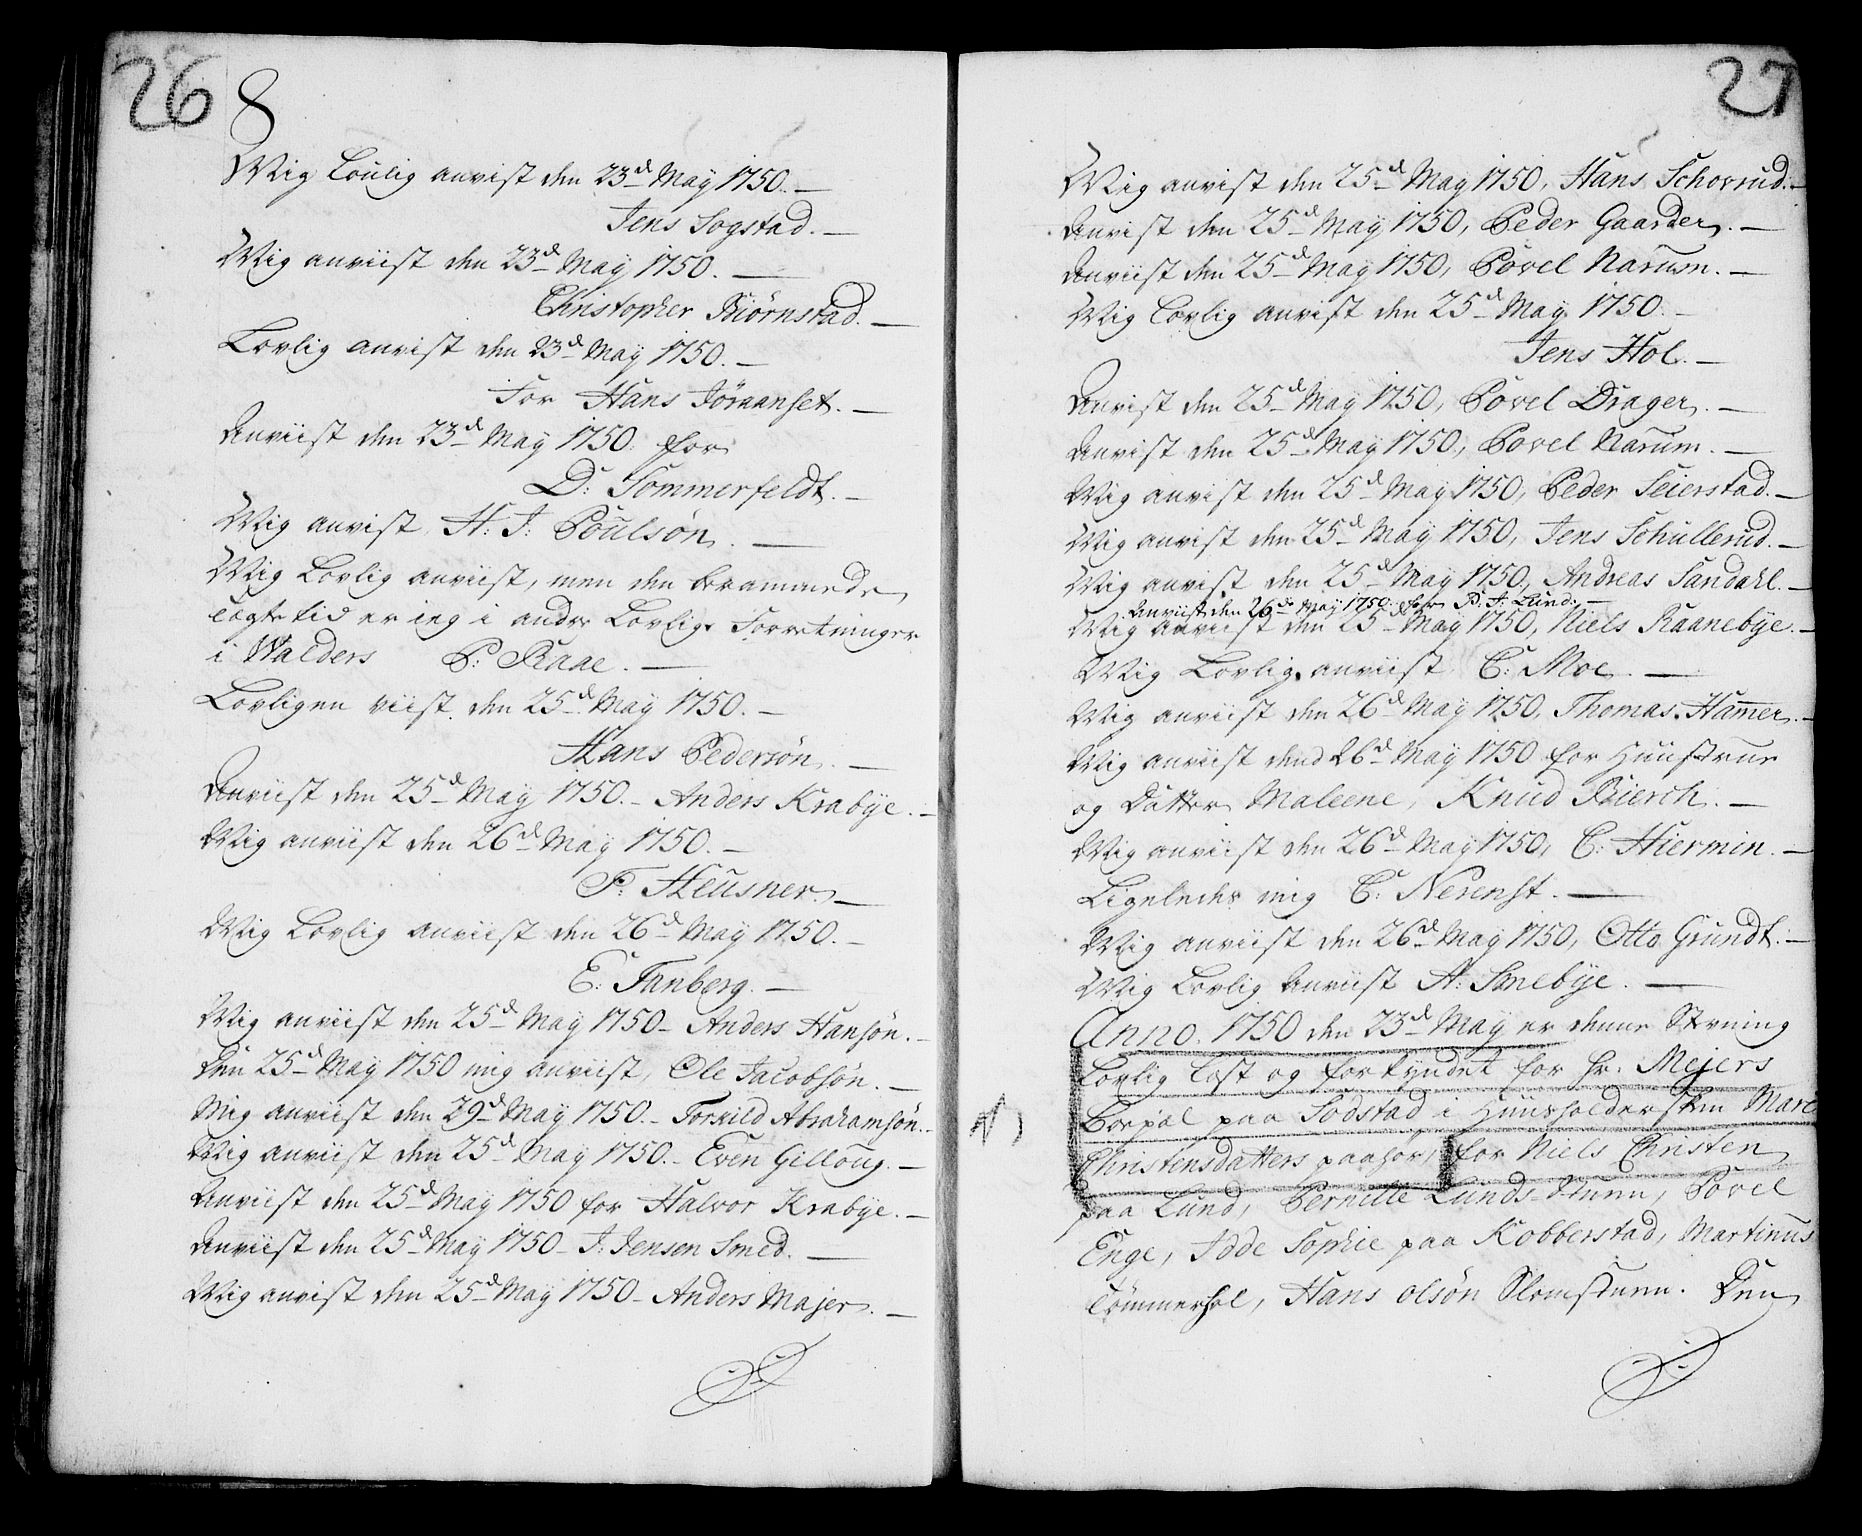 26
8
Mig Loulig anvist den 23d May 1750.
Jens Sogstad.
Mig anviist den 23d May 1750.
Christopher Biörnstad.
Lovlig anvist den 23d May 1750.
For Hans Jöraanset.
Anviist den 23d May 1750. for
D: Sommerfeldt.
Mig anvist H: J: Poulsön.
Mig Lovlig anviist, men den berammede
tægte tid er ieg i andre Lovlige Forretninger
i Walders P: Raae.
Lovligen viist den 25d May 1750.
Hans Pedersön.
Anviist den 25d May 1750. Anders Krabÿe.
Mig anviist den 26d May 1750.
F: Heusner.
Mig Lovlig anviist den 26d May 1750.
E: Tanberg.
Mig anviist den 25d May 1750 Anders Hansön.
Den 25d May 1750 mig anviist, Ole Jacobsön.
Mig anviist den 29d May 1750. Torkild Abrahamsön.
Mig anviist den 25d May 1750. Even Gilloug.
Anviist den 25d May 1750 for Halvor Krabÿe.
Anviist den 25d May 1750 J: Jensen Smed.
Mig anvist den 25d May 1750 Anders Majer.
27
Mig anvist den 25d May 1750, Hans Schovrud.
Anvist den 25d May 1750, Peder Gaarder.
Anviist den 25d May 1750, Povel Narum.
Mig Lovlig anvist den 25d May 1750.
Jens Hol.
Anvist den 25d May 1750, Povel Drager.
Anvist den 25d May 1750, Povel Narum.
Mig anvist den 25d May 1750, Peder Seierstad.
Mig anvist den 25d May 1750, Jens Schullerud.
Mig anvist den 25d May 1750, Andreas Sandahl.
Anviist den 26de May 1750 for P: J: Lund.
Mig anviist den 25d May 1750, Niels Raanebÿe.
Mig Lovlig anviist C: Moe.
Mig anviist den 26d May 1750, Thomas Hammer.
Mig anviist dend 26d May 1750 for Huustrue
og Datter Maleene, Knud Bierch.
Mig anviist den 26d May 1750, C: Hiermin.
Ligeledes mig C: Nerenst.
Mig anviist den 26d May 1750, Otto Grundt.
Mig Lovlig Anviist A: Smebÿe.
Anno 1750 den 23d May er denne Stevning
Lovlig Læst og forkyndet for Hr. Mejers
Boepæl paa Sodstad i Huusholdersken Mare
Christensdatters paahör, for Niels Christen
paa Lund, Pernille Lunds Tuen, Povel
Enge, Idde Sophie paa Kobberstad, Martinus
Tömmerhol, Hans Olsön Slomstuen. Den